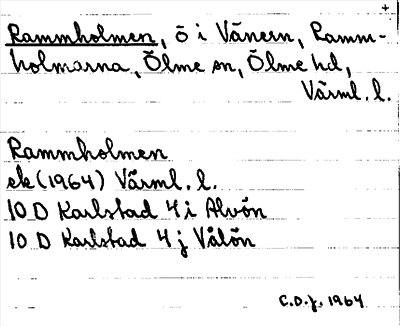 +
Rammholmen, ö i Vänern, Ramm-
holmarna, Ölme sn, Ölme hd,
Värml. l.
Rammholmen
ek (1964) Värml. l.
10 D Karlstad 4 i Alvön
10 D Karlstad 4 j Vålön
C.D.J., 1964